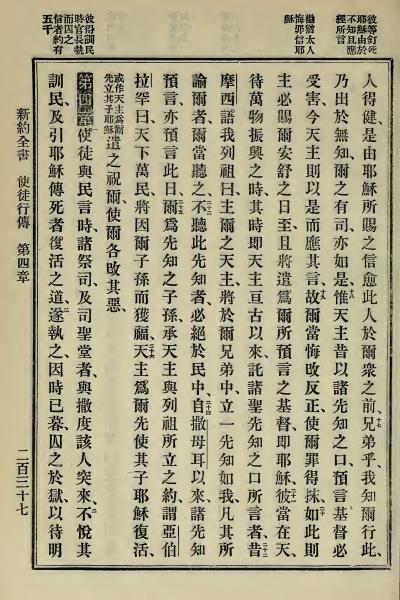 彼等釘死
耶穌由於
不知且應
經所言
勸猶太人
悔罪信耶
穌
彼得訓民
時官長執
而囚之
信者約有
五千
人得健是由耶穌所賜之信愈此人於爾衆之前兄弟乎我知爾行此、
乃出於無知爾之有司亦如是惟天主昔以諸先知之口預言基督必
受害今天主則以是而應其言故爾當悔改反正使爾罪得抹如此則
主必賜爾安舒之日至且將遣爲爾所預言之基督即耶穌彼當在天、
待萬物振興之時其時即天主亘古以來託諸聖先知之口所言者昔
摩西語我列祖曰主爾之天主將於爾兄弟中立一先知如我凡其所
諭爾者爾當聽之不聽此先知者必絕於民中自撒母耳以來諸先知
預言亦預言此日爾爲先知之子孫承天主與列祖所立之約謂亞伯
拉罕曰天下萬民將因爾子孫而獲福天主爲爾先使其子耶穌復活、
或作天主爲爾
先立其子耶穌
遣之祝爾使爾各改其惡、
第四章使徒與民言時諸祭司及司聖堂者與撒度該人突來不悅其
訓民及引耶穌傳死者復活之道遂執之因時已暮囚之於獄以待明
新約全書 使徒行傳 第四章 二百三十七